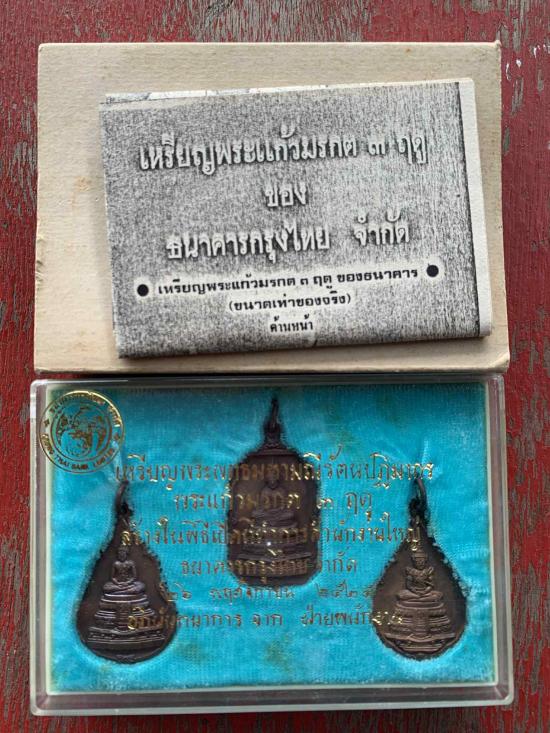 เหรียญพระแก้วมรกต ๓ ฤดู
ของ
ธนาคารกรุงไทย จำกัด
● เหรียญพระแก้วมรกต ๓ ฤดู ของธนาคาร ●
(ขนาดเท่าของจริง)
ด้านหน้า
KRUNG THAI BANK LIMITED
เหรียญพระพุทธมหามณีรัตนปฏิมากร
พระแก้วมรกต ๓ ฤดู
สร้างในพิธีเปิดที่ทำการสำนักงานใหญ่
ธนาคารกรุงไทย จำกัด
๒๖ พฤศจิกายน
อภินันทนาการ จาก ฝ่ายพนักงาน